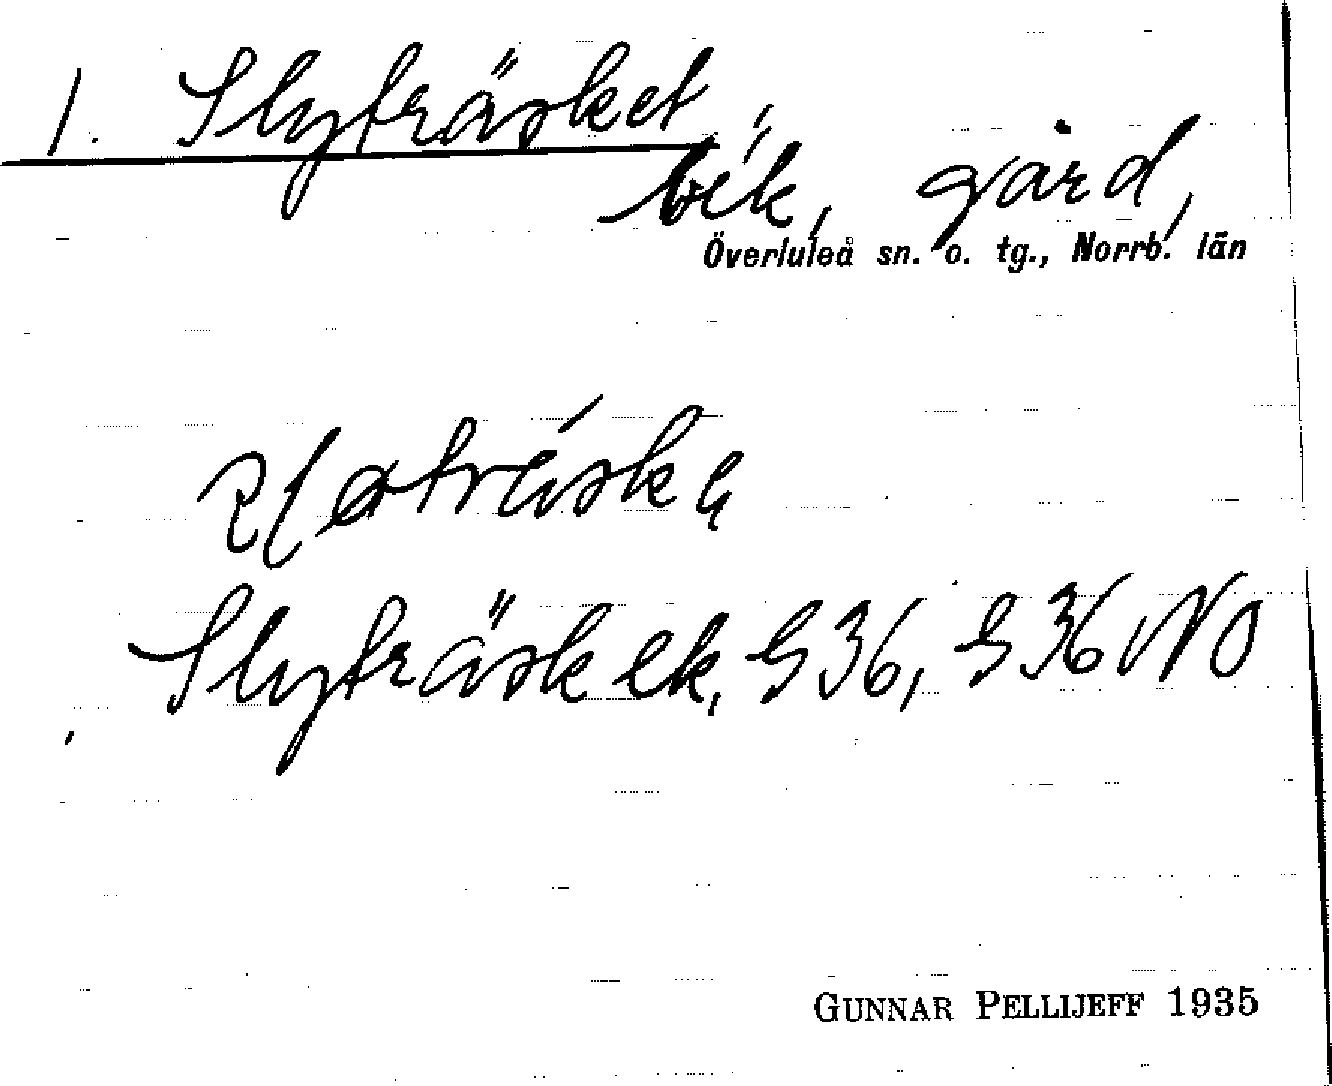 1. Slyträsket,
vik, gård,
Överluleå sn. o. tg., Norrb. län
Slyträsk ek, S36, S36NO
GUNNAR PELLIJEFF 1935